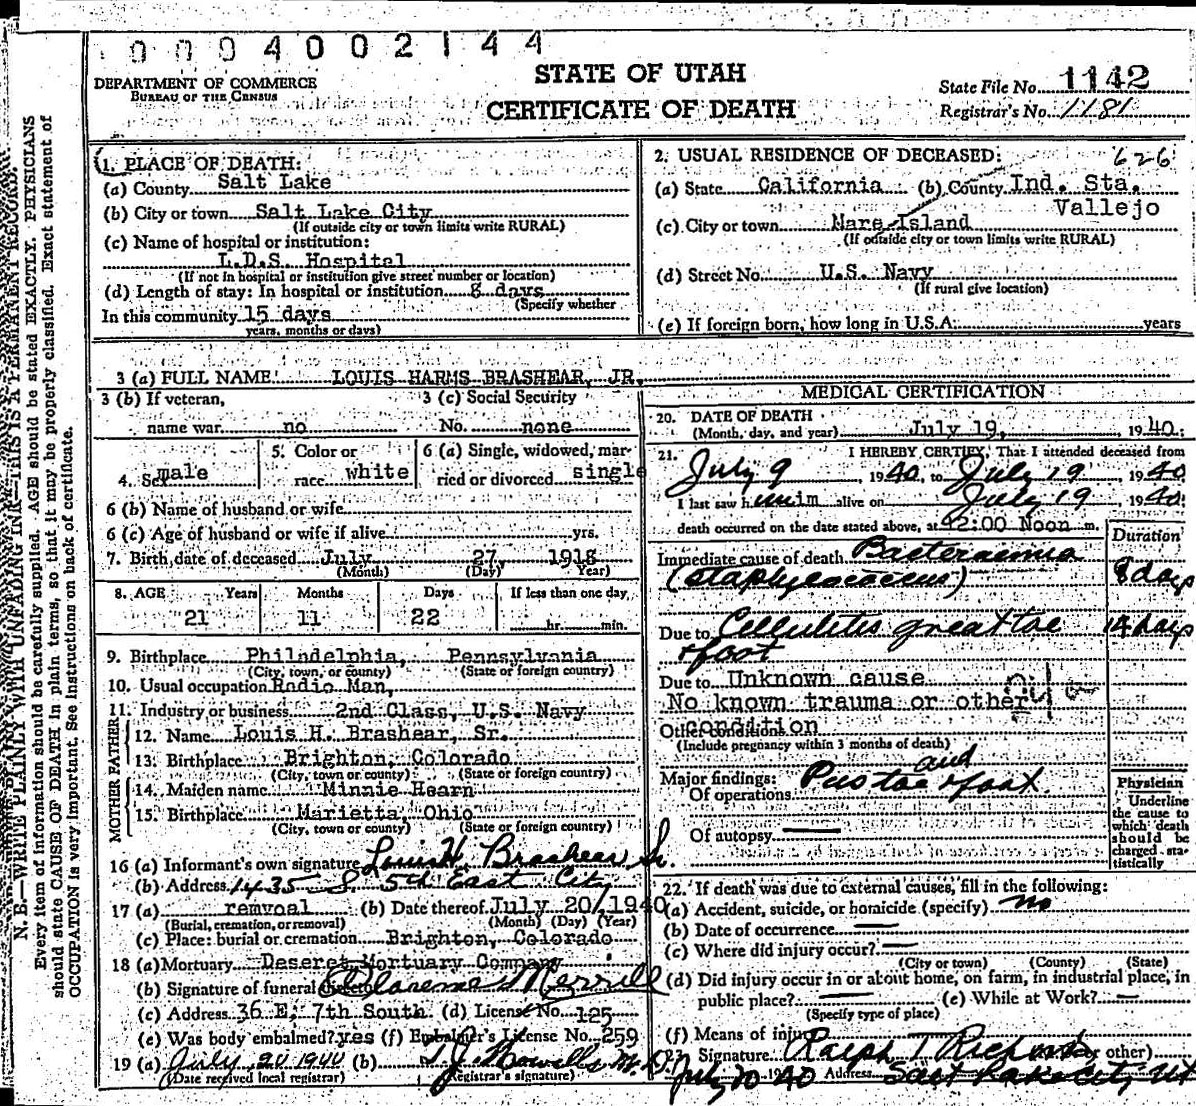 0004002144
DEPARTMENT OF COMMERCE
BUREAU OF THE CENSUS
STATE OF UTAH
CERTIFICATE OF DEATH
State File No. 1142
Registrar's No. 1181
N. B.—WRITE PLAINLY WITH UNFADING INK—THIS IS A PERMANENT RECORD.
Every item of information should be carefully supplied. AGE should be stated EXACTLY. PHYSICIANS
should state CAUSE OF DEATH in plain terms, so that it may be properly classified. Exact statement of
OCCUPATION is very important. See instructions on back of certificate.
1. PLACE OF DEATH:
(a) County Salt Lake
(b) City or town Salt Lake City
(If outside city or town limits write RURAL)
(c) Name of hospital or institution:
L.D.S. Hospital
(If not in hospital or institution give street number or location)
(d) Length of stay: In hospital or institution 8 days
(Specify whether
In this community 15 days
years, months or days)
2. USUAL RESIDENCE OF DECEASED: 626
(a) State California (b) County Ind. Sta.
Vallejo
(c) City or town Mare Island
(If outside city or town limits write RURAL)
(d) Street No. U.S. Navy
(If rural give location)
(e) If foreign born, how long in U.S.A. years
3 (a) FULL NAME LOUIS HARMS BRASHEAR, JR.
3 (b) If veteran, 3 (c) Social Security
name war no No. none
4. Sex male 5. Color or race white 6 (a) Single, widowed, married or divorced single
6 (b) Name of husband or wife
6 (c) Age of husband or wife if alive yrs.
7. Birth date of deceased July 27 1918
(Month) (Day) Year)
8. AGE Years Months Days If less than one day
21 11 22 hr. min.
9. Birthplace Philadelphia, Pennsylvania
(City, town, or county) (State or foreign country)
10. Usual occupation Radio Man,
11. Industry or business 2nd Class, U.S. Navy
FATHER
12. Name Louis H. Brashear, Sr.
13. Birthplace Brighton, Colorado
(City, town or county) (State or foreign country)
MOTHER
14. Maiden name Minnie Hearn
15. Birthplace Marietta, Ohio
(City, town or county) (State or foreign country)
16 (a) Informant's own signature Louis H. Brashear Sr.
(b) Address 1435 S. 5th East City
17 (a) removal (b) Date thereof July 20, 1940
(Burial, cremation, or removal) (Month) (Day) (Year)
(c) Place: burial or cremation Brighton, Colorado
18 (a) Mortuary Deseret Mortuary Company
(b) Signature of funeral director Clarence Merrill
(c) Address 36 E. 7th South (d) License No. 125
(e) Was body embalmed? yes (f) Embalmer's License No. 259
19 (a) July 20 1940 (b) M.D.
(Date received local registrar) (Registrar's signature)
MEDICAL CERTIFICATION
20. DATE OF DEATH
(Month, day, and year) July 19, 1940
21. I HEREBY CERTIFY, That I attended deceased from
July 9, 1940, to July 19, 1940
I last saw him alive on July 19 1940
death occurred on the date stated above, at 12:00 Noon m.
Duration
Immediate cause of death Bacteraemia
(staphylococcus) 8 days
Due to Cellulitis great toe 14 days
& foot
Due to Unknown cause
No known trauma or other
Other condition
(Include pregnancy within 3 months of death)
Major findings:
Of operations Pus toe and foot.
Of autopsy —
Physician
Underline
the cause to
which death
should be
charged sta-
tistically
22. If death was due to external causes, fill in the following:
(a) Accident, suicide, or homicide (specify) no
(b) Date of occurrence —
(c) Where did injury occur? —
(City or town) (County) (State)
(d) Did injury occur in or about home, on farm, in industrial place, in
public place? — (e) While at Work? —
(Specify type of place)
(f) Means of injury
23. Signature Ralph T Richards other)
July 20 1940 Address Salt Lake City Ut